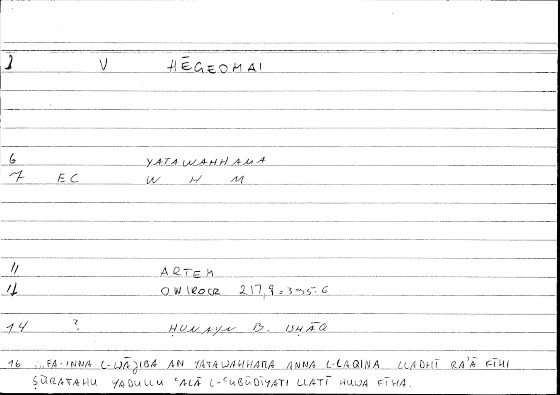 1 V HĒGEOMAI
6 YATAWAHHAMA
7 EC W H M
11 ARTEM
12 ONIROCR 217,9 = 395.6
14 ? ḤUNAYN B. ISḤĀQ
16 ...FA-INNA L-WĀJIBA AN YATAWAHHAMA ANNA L-LAQINA LLADHĪ RAʾĀ FĪHI
ṢŪRATAHU YADULLU ʿALĀ L-ʿUBŪDĪYATI LLATĪ HUWA FĪHA.